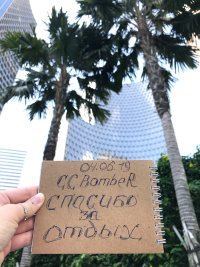 04.06.19
CC BombeR
СПАСИБО
ЗА
ОТДЫХ